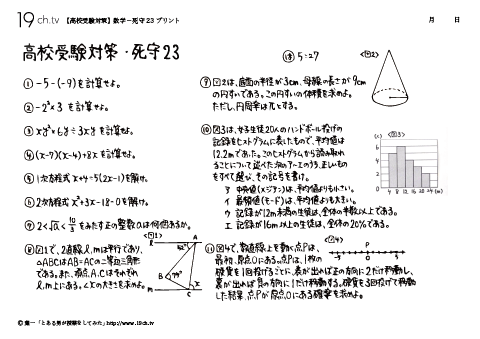 19ch.tv 【高校受験対策】数学－死守23プリント
月 日
高校受験対策・死守23
① -5-(-9)を計算せよ。
② -2³×3 を計算せよ。
③ xy²×6y÷3xyを計算せよ。
④ (x-7)(x-4)+8xを計算せよ。
⑤ 1次方程式x+4=5(2x-1)を解け。
⑥ 2次方程式x²+3x-18=0を解け。
⑦ 2<√a<10/3をみたす正の整数aは何個あるか。
⑧ 図1で、2直線l,mは平行であり、
△ABCはAB=ACの二等辺三角形
である。また、頂点A、Cはそれぞれ
l,m上にある。∠xの大きさを求めよ。
<図1>
l
A
52°
B
79°
x
m
C
15:27
<図2>
⑨ 図2は、底面の半径が3cm、母線の長さが9cm
の円すいである。この円すいの体積を求めよ。
ただし、円周率はπとする。
⑩ 図3は、女子生徒20人のハンドボール投げの
記録をヒストグラムに表したもので、平均値は
12.2mであった。このヒストグラムから読み取れ
ることについて述べた次のア~エのうち、正しいもの
をすべて選び、その記号を書け。
ア 中央値(メジアン)は、平均値よりも小さい。
イ 最頻値(モード)は、平均値よりも大きい。
ウ 記録が12m未満の生徒は、全体の半数以上である。
エ 記録が16m以上の生徒は、全体の20%である。
<図3>
(人)
4 8 12 16 20 24 (m)
⑪ 図4で、数直線上を動く点Pは、
最初、原点Oにある。点Pは、1枚の
硬貨を1回投げるごとに、表が出れば正の方向に2だけ移動し、
裏が出れば負の方向に1だけ移動する。硬貨を3回投げて移動
した結果、点Pが原点Oにある確率を求めよ。
<図4>
P
-5 0 5
葉一「とある男が授業をしてみた」http://www.19ch.tv